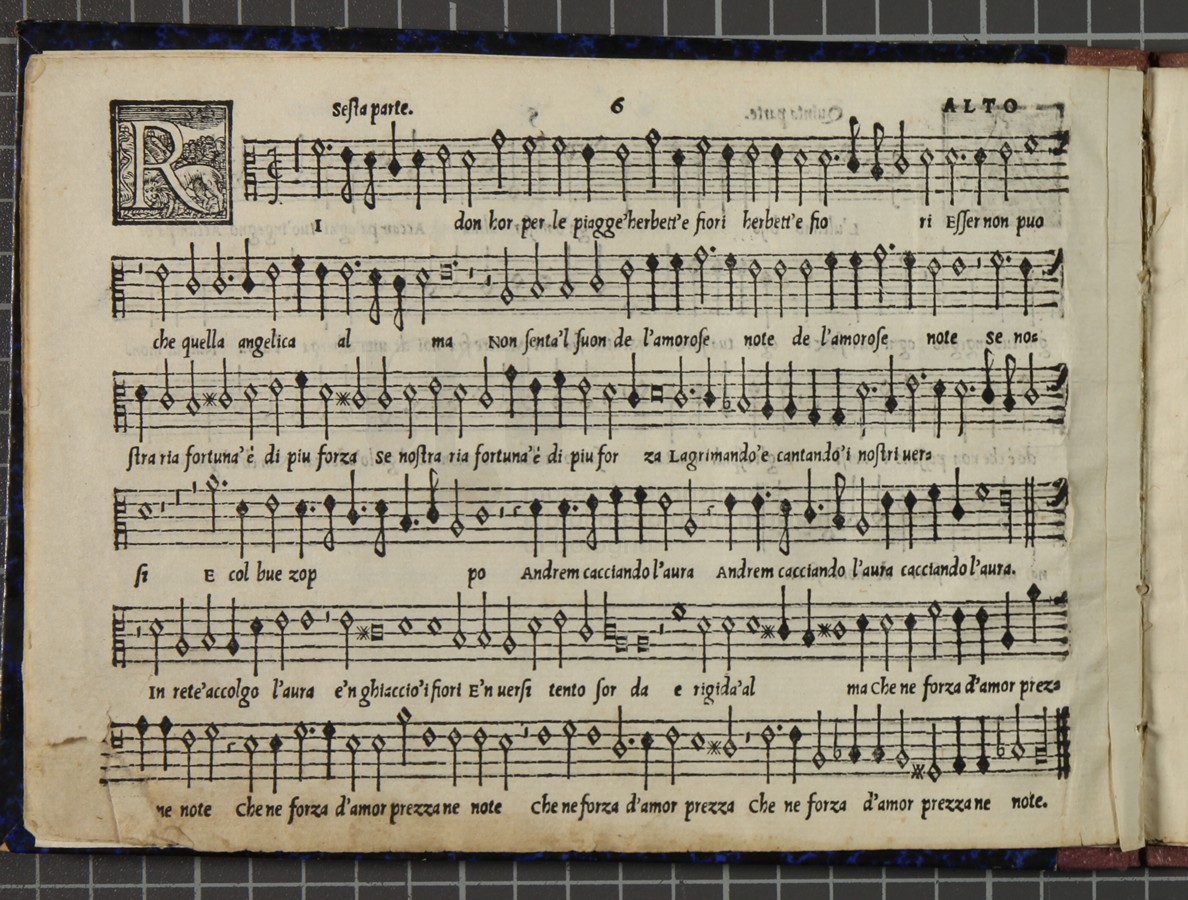 Sesta parte. 6 ALTO
RI don hor per le piagge'herbett'e fiori herbett'e fio ri Esser non puo
che quella angelica al ma Non senta'l suon de l'amorose note de l'amorose note se no=
stra ria fortuna'è di piu forza se nostra ria fortuna'è di piu for za Lagrimando'e cantando'i nostri uer=
si E col bue zop po Andrem cacciando l'aura Andrem cacciando l'aura cacciando l'aura.
In rete'accolgo l'aura e'n ghiaccio'i fiori E'n uersi tento sor da e rigida'al ma Che ne forza d'amor prez=
ne note Che ne forza d'amor prezza ne note Che ne forza d'amor prezza Che ne forza d'amor prezza ne note.